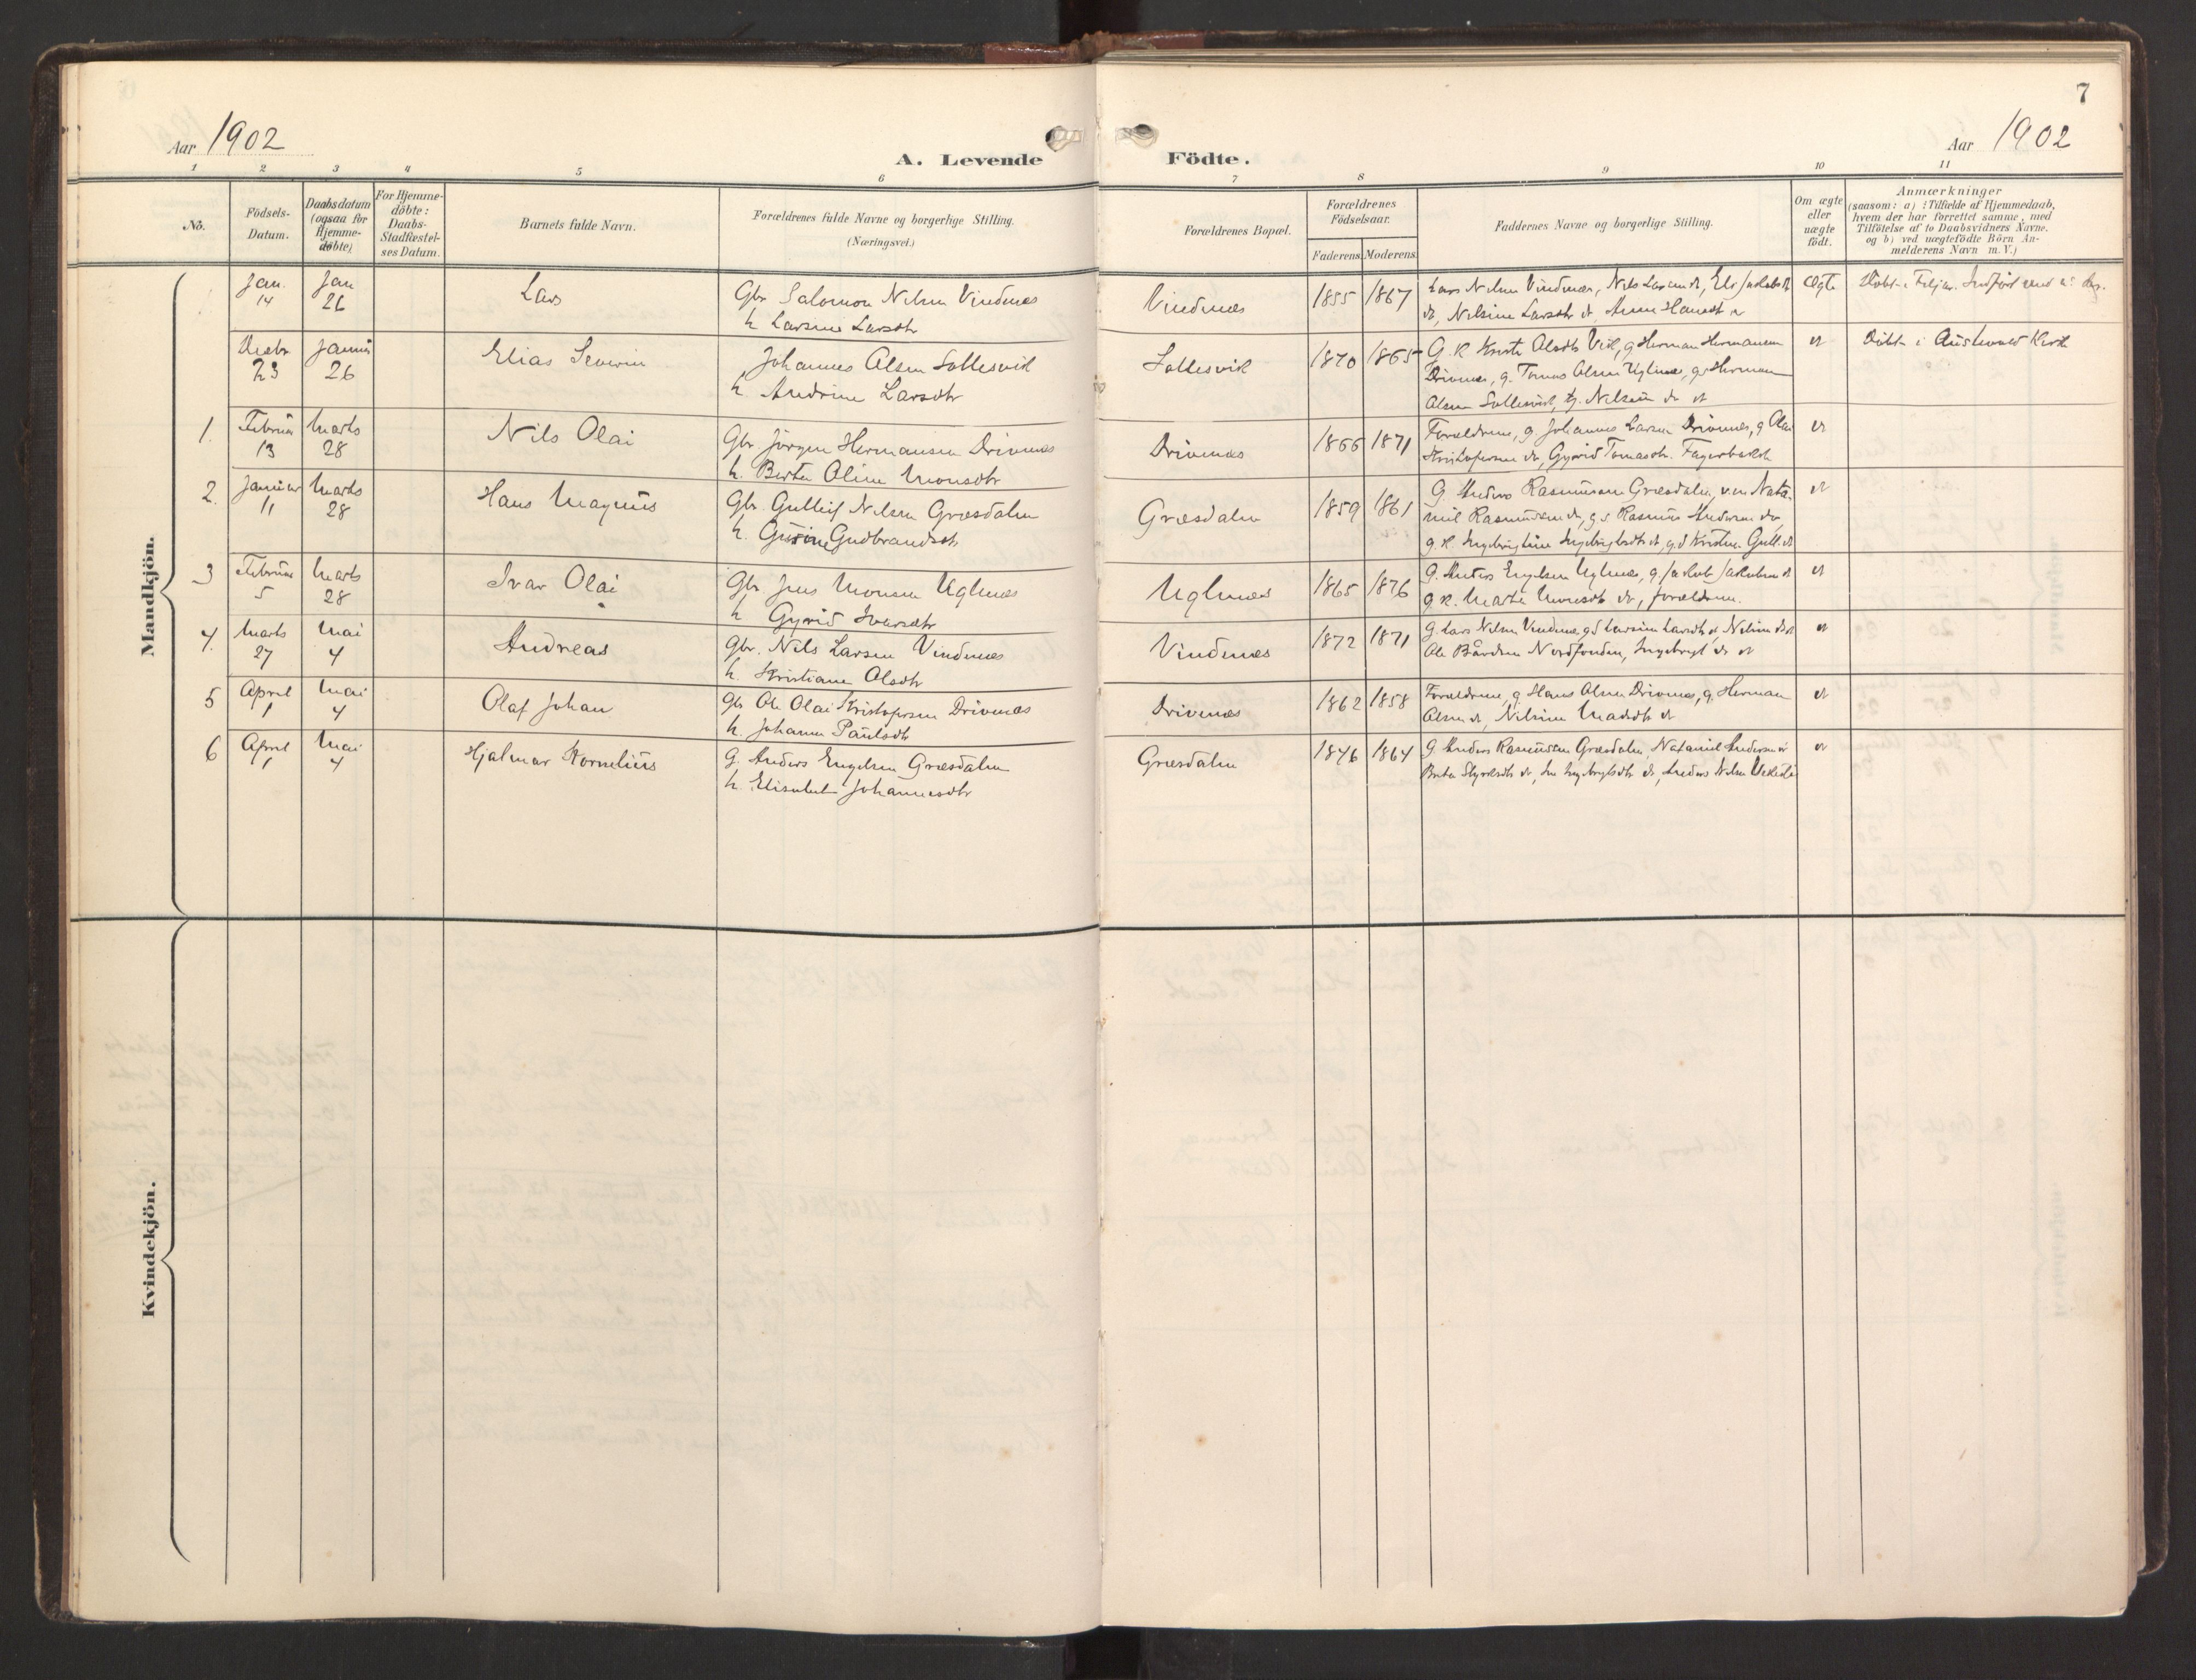 7
Aar 1902
A. Levende Födte.
Aar 1902
1 2 3 4 5 6 7 8 9 10 11
No.
Födsels-
Datum.
Daabsdatum
(ogsaa for
Hjemme-
döbte)
For Hjemme-
döbte:
Daabs-
Stadfæstel-
ses Datum.
Barnets fulde Navn.
Forældrenes fulde Navne og borgerlige Stilling.
(Næringsvei.)
Forældrenes Bopæl.
Forældrenes
Födselsaar.
Faderens. Moderens.
Faddernes Navne og borgerlige Stilling.
Om ægte
eller
uægte
födt.
Anmærkninger
(saasom: a) i Tilfælde af Hjemmedaab,
hvem der har forrettet samme, med
Tilföielse af to Daabsvidners Navne.
og b) ved uægtefödte Börn An-
melderens Navn m.V.)
Mandkjön.
Jan. 14
Jan 26
Lars
Gbr Salomon Nilsen Vindenes
h Larsine Larsdtr
Vindenes
1855 1867
Lars Nilsen Vindenes, Nils Larsen dr, Els Jakobsdtr
dr, Nelsine Larsdtr dr, Anne Hansdtr dr
Ægte
Döbt i Feljar.
Decbr 23
Januar 26
Elias Severin
Johannes Olsen Sallesvik
h Andrine Larsdtr
Sallesvik
1870 1865
G. K Kirste Olsdtr Vik, g Herman Hermansen
Drivenes, g. Tomas Olsen Uglenes, gs Herman
Olsen Sallesvik, Nelsine dr
dr
Döbt i Austevold Kirke
1.
Februar 13
Marts 28
Nils Olai
Gbr. Jörgen Hermansen Drivenes
h. Berta Oline Monsdtr
Drivenes
1866 1871
Forældrene, g Johannes Larsen Drivenes, g Olai
Kristofersen dr, Gyrid Tomasdtr. Fagerbakk
dr
2.
Januar 11
Marts 28
Hans Magnus
Gbr. Gulleif Nilsen Græsdalen
h. Gurine Gudbrandsdtr
Græsdalen
1859 1861
G. Anders Rasmussen Græsdalen, Nata-
niel Rasmussen dr, g.s Rasmus Andersen dr,
g.k. Ingebrigtine Ingebrigtsdtr dr, g.d Kristine Gull. dr
dr
3
Februar 5
Marts 28
Ivar Olai
Gbr Jens Monsen Uglenes
h Gyrid Ivarsdtr
Uglenes
1865 1876
G. Anders Engelsen Uglenes, g. Jakob Jakobsen dr
g.k. Marta Monsdtr dr, forældrene.
dr
4.
Marts 27
Mai 4
Andreas
Gbr. Nils Larsen Vindenes
h. Kristiane Olsdtr
Vindenes
1872 1871
G. Lars Nilsen Vindenes, gd Larsine Larsdtr dr, Nelsine dr
Ole Bårdsen Nordfonden, Ingeborg dr
dr
5
April 1
Mai 4
Olaf Johan
Gbr Ole Olai Kristofersen Drivenes
h. Johanne Paulsdtr
Drivenes
1862 1858
Forældrene, g Hans Olsen Drivenes, g. Herman
Olsen dr, Nilsine Madsdtr dr
dr
6
April 1
Mai 4
Hjalmar Kornelius
G. Anders Engelsen Græsdalen
h. Elisabet Johannesdtr
Græsdalen
1846 1864
G. Anders Rasmussen Græsdalen, Nataniel Andersen dr
Brita Styrksdtr dr, Ingebrigtsdtr dr, Anders Nilsen
dr
Kvindekjön.